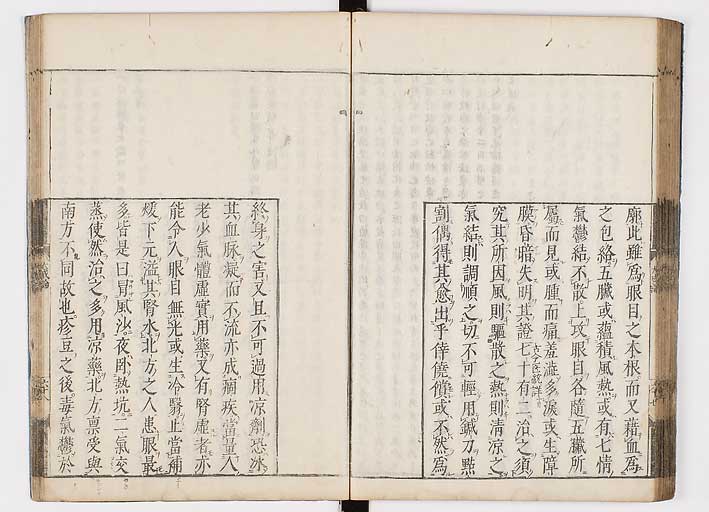 廓此雖為眼目之本根而又藉血為
之包絡五臟或蘊積風熱或有七情
氣鬱結不散上攻眼目各隨五臟所
屬而見或腫而痛羞澁多淚或生障
膜昏暗失明其證七十有二治之須
究其所因風則驅散之熱則清涼之
氣結則調順之切不可輕用鍼刀點
割偶得其愈出乎僥倖或不然為
終身之害又且不可過用涼劑恐冰
其血脉凝而不流亦成痼疾當量人
老少氣體虛實用藥又有腎虛者亦
能令人眼目無光或生冷翳止當補
煖下元溢其腎水北方之人患眼最
多皆是日冒風沙夜卧熱坑二氣交
蒸使然治之多用涼藥北方禀受與
南方不同故也疹豆之後毒氣鬱於